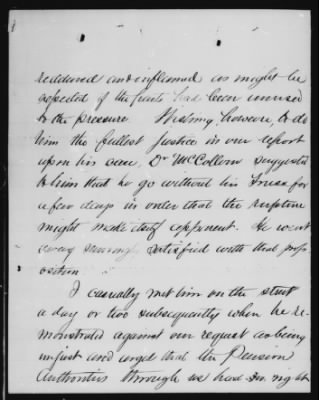 reddened and inflamed as might be
expected if the parts had been unused
to the pressure. Wishing however, to do
him the fullest justice in our report
upon his case, Dr McCollom suggested
to him that he go without his truss for
a few days in order that the rupture
might make itself apparent. He went
away seemingly satisfied with that prop
osition.
I casually met him on the street
a day or two subsequently when he re-
monstrated against our request as being
unjust and urged that the Pension
Authorities through us had no right